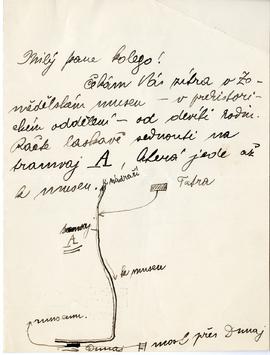 Milý pane kolego!
Čekám Vás zítra v Ze-
mědělském museu – v prehistori-
ckém oddělení – od devíti hodin.
Račte laskavě sednouti na
tramvaj A, která jede až
k museu.
nádraží
Tatra
tramvaj
A
ke museu
museum.
Dunaj
most přes Dunaj